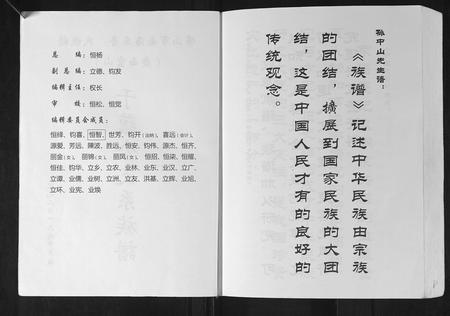 总编：恒杨
副总编：立德、钧发
编辑主任：权长
审校：恒松、恒觉
编辑委员会成员：
恒绎、钧喜、恒智、世芳、钧开（出纳）、喜远（会计）、
源爱、芳远、陳波、胜远、恒安、钧伟、源杰、恒齐、
丽金（女）、丽锦（女）、丽凤（女）、恒招、恒柒、恒耀、
恒佳、钧华、立乡、立农、业林、业东、业汉、立广、
立谭、业儒、业树、立洲、立友、洪基、立辉、业旭、
立环、业宪、业焕
孙中山先生语：
《族谱》记述中华民族由宗族
的团结，擴展到国家民族的大团
结，这是中国人民才有的良好的
传统观念。